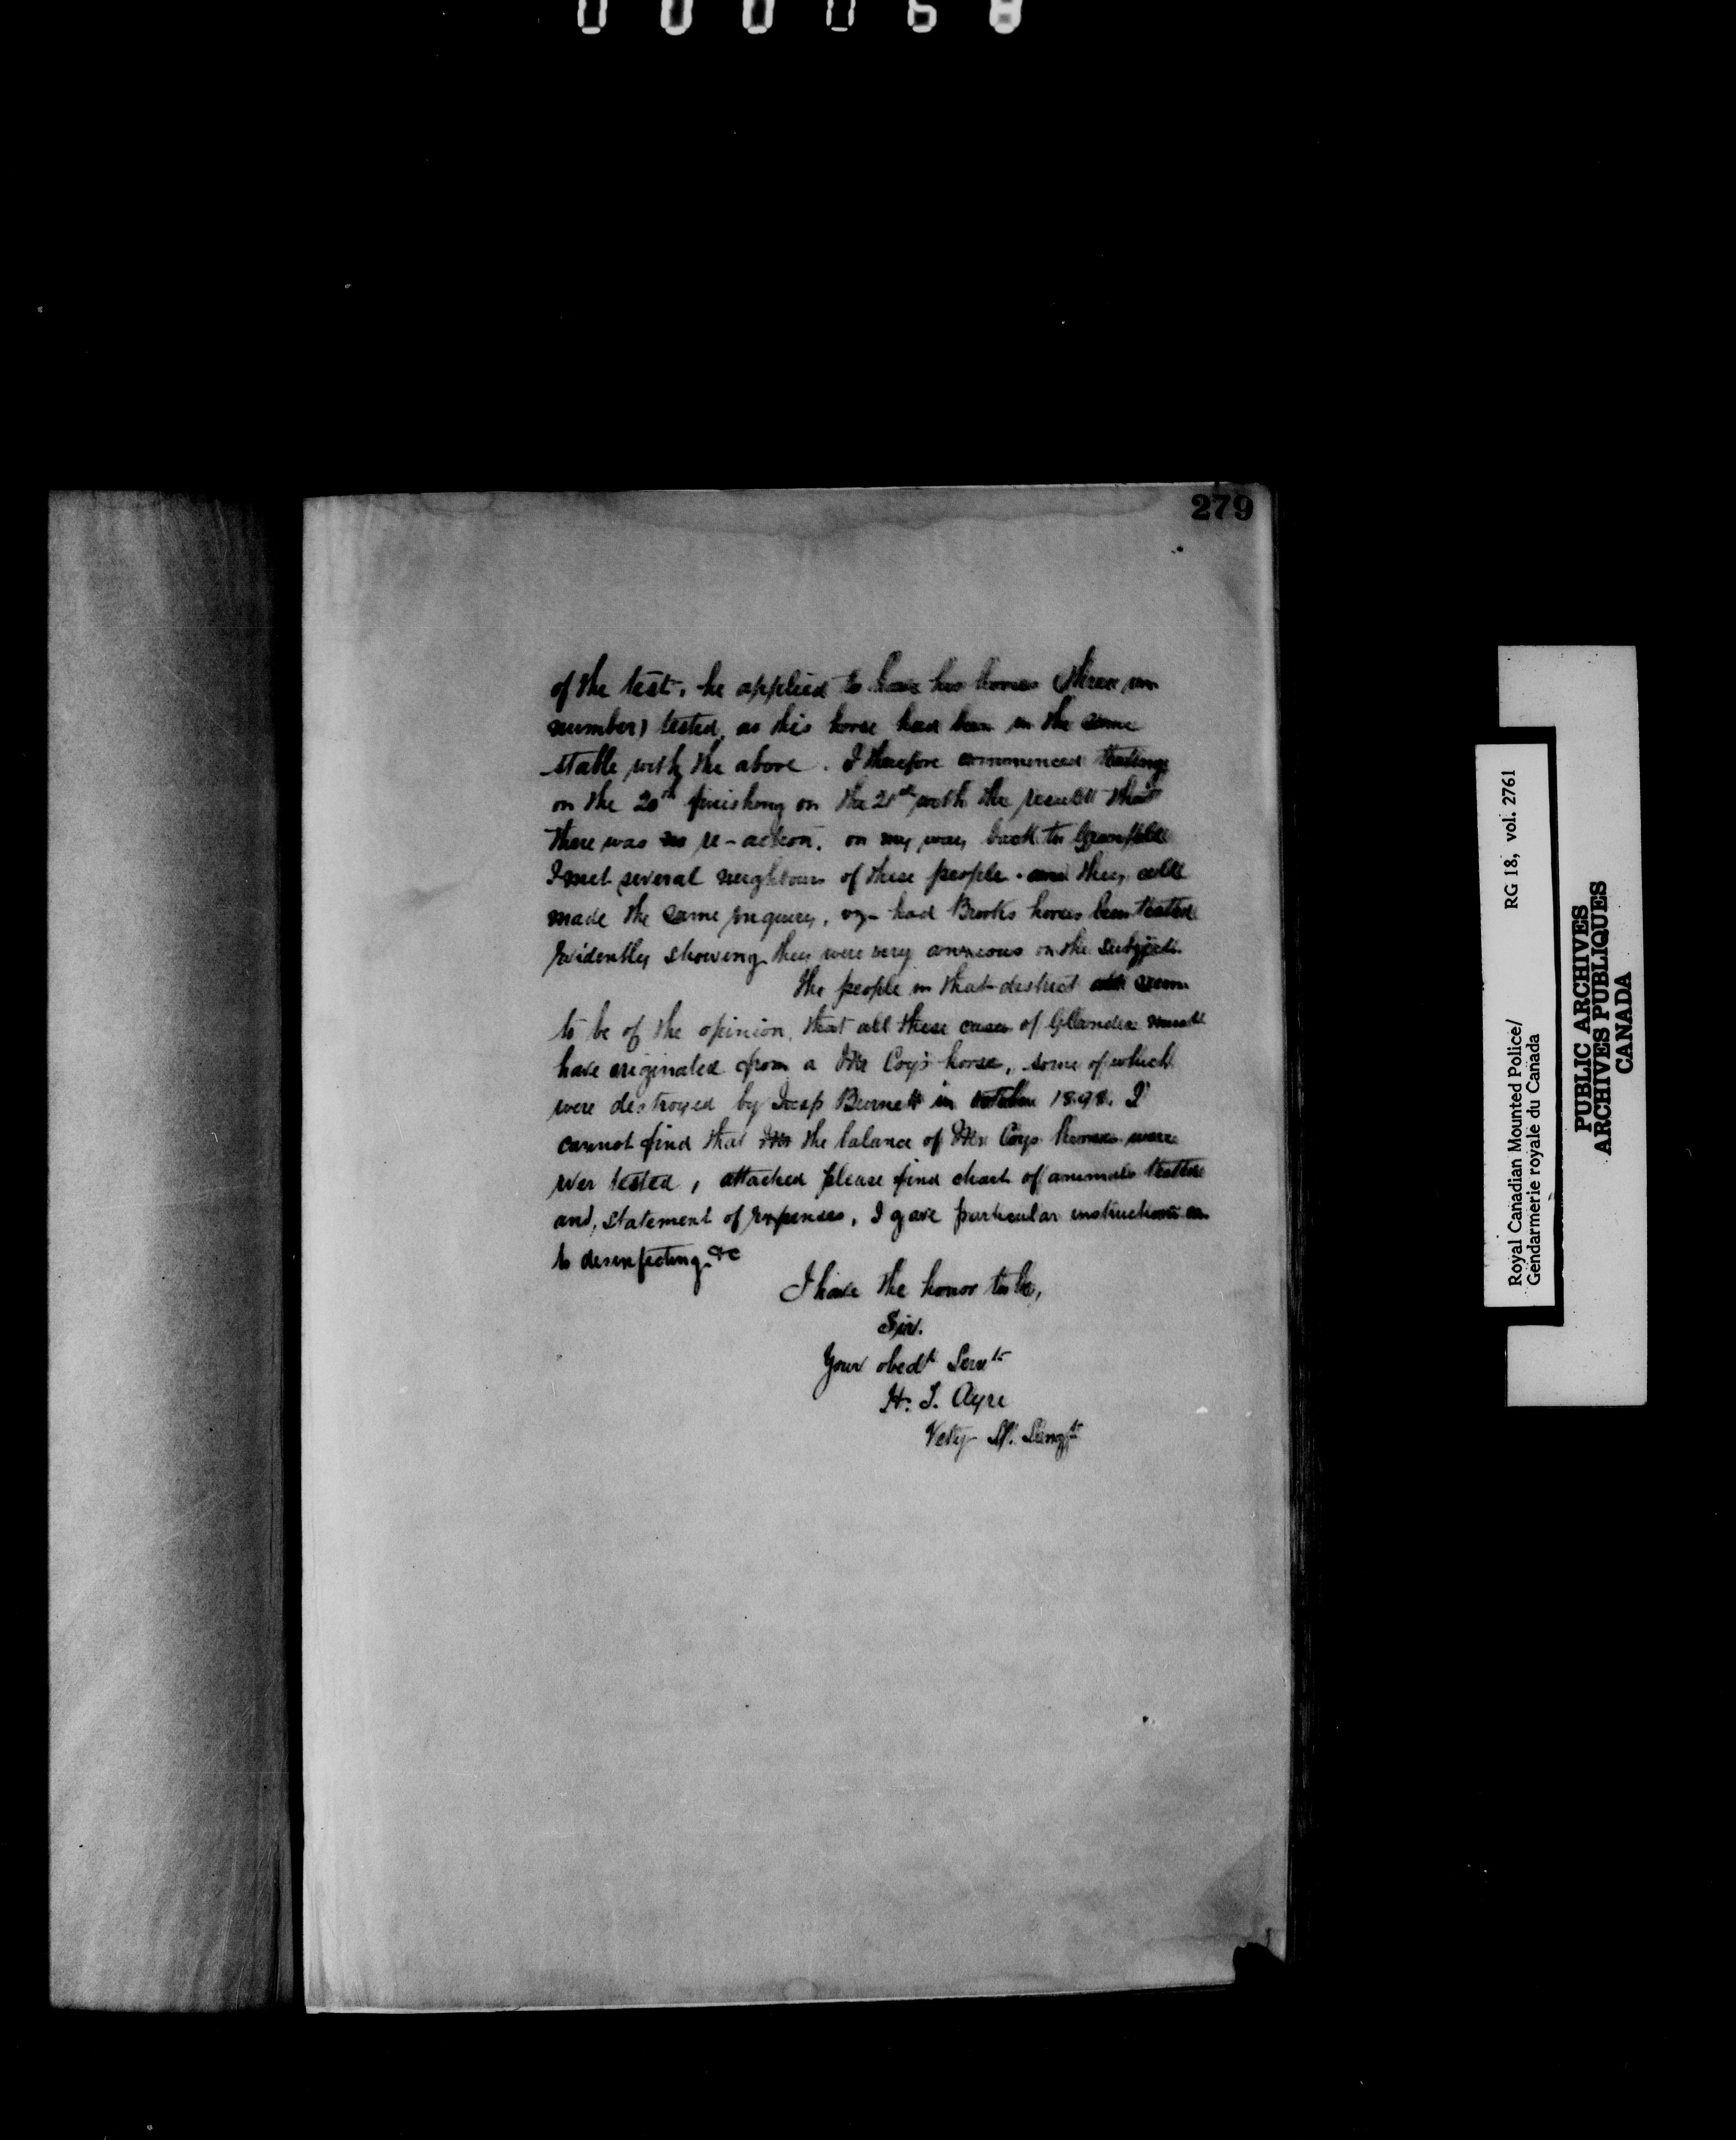 000068
279
of the test, he applied to have his horses (three in
number) tested, as his horse had been in the same
stable with the above. I therefore commenced testing
on the 20th finishing on the 21st with the result that
there was no re-action. on my way back to Grenfell
I met several neighbours of these people. and they all
made the same inquiry, viz- had Brooks horses been tested
evidently showing they were very anxious on the subject.
The people in that district all seem
to be of the opinion, that all these cases of Glanders must
have originated from a Mr Coy's horse, some of which
were destroyed by Insp Burnett in October 1898. I
cannot find that the balance of Mr Coys horses were
ever tested, attached please find chart of animals tested
and, statement of expenses, I gave particular instructions as
to desinfecting &c
I have the honor to be,
Sir.
Your obedt Servt
H. T. Ayre
Vety S/. Sergt
Royal Canadian Mounted Police/ RG 18, vol. 2761
Gendarmerie royale du Canada
PUBLIC ARCHIVES
ARCHIVES PUBLIQUES
CANADA